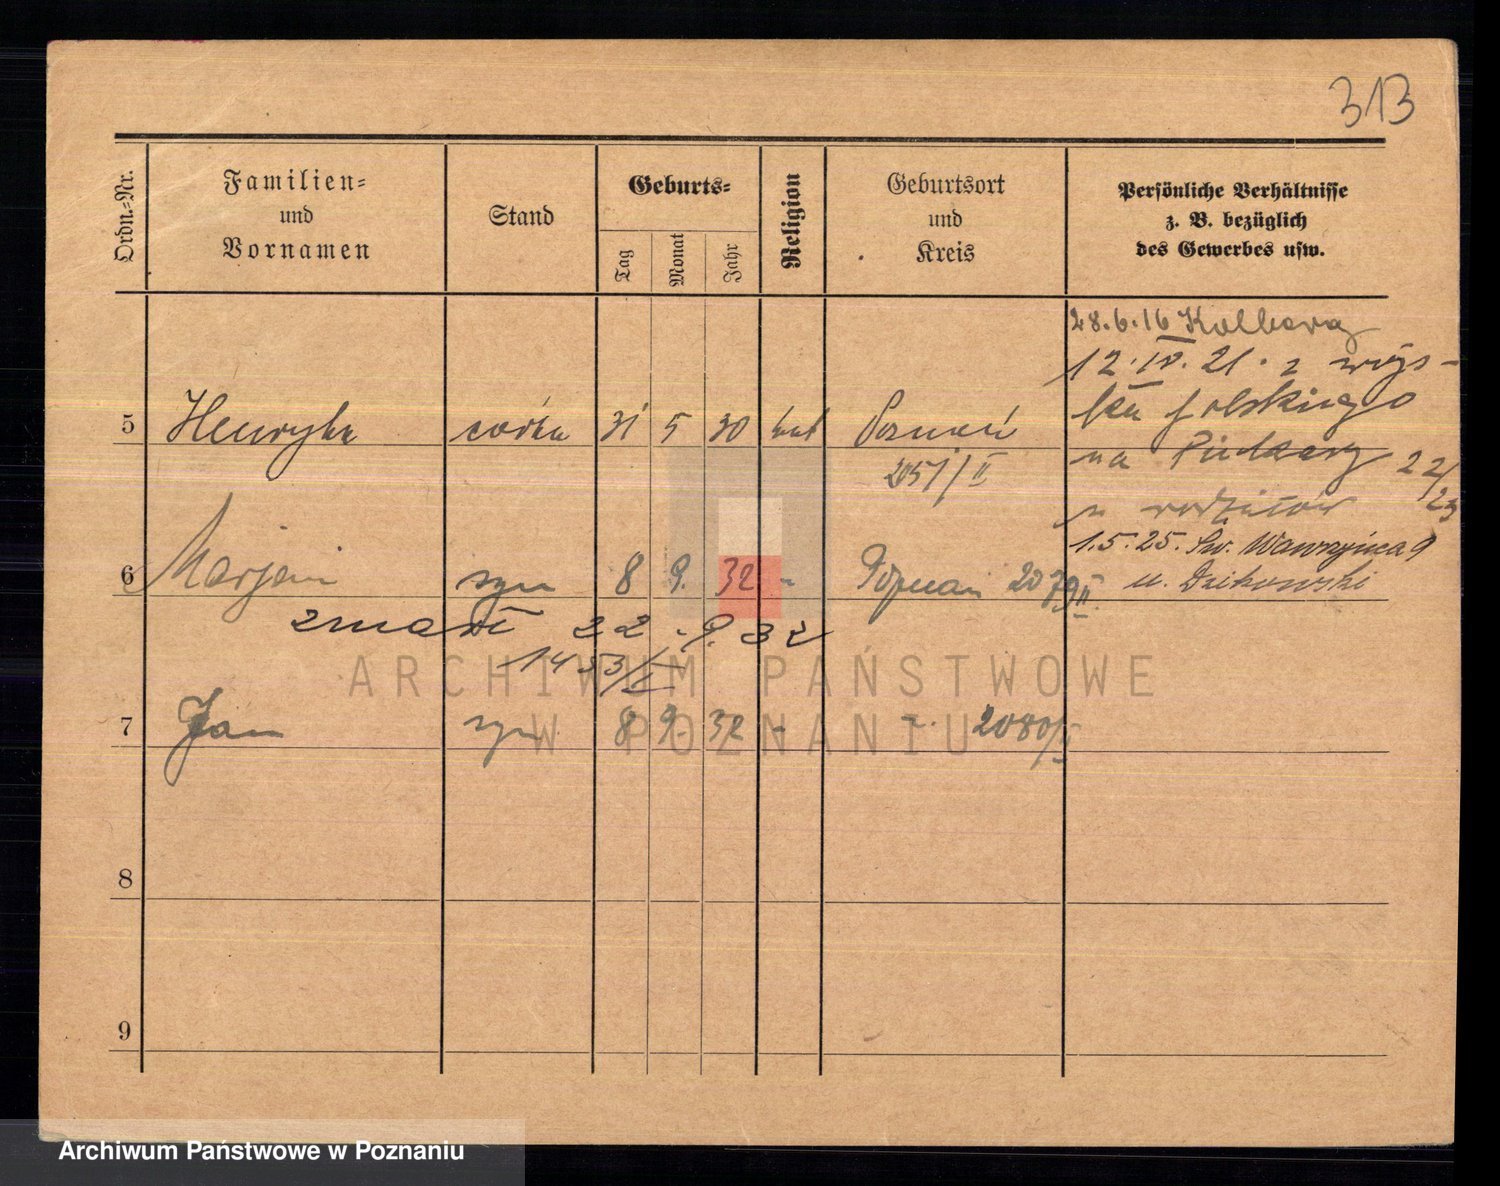 313
Ordn.-Nr.
Familien-
und
Vornamen
Stand
Geburts-
Tag
Monat
Jahr
Religion
Geburtsort
und
Kreis
Persönliche Verhältnisse
z. B. bezüglich
des Gewerbes usw.
28.6.16 Kolberg
12.IV.21. z wojs-
ka polskiego
na Piekary 22/23
u rodziców
1.5.25. Św. Wawrzyńca 9
u. Dzikowski
5 Henryka córka 31 5 30 kat Poznań
2057/II
6 Marjan syn 8 9. 32 - Poznań 2079/II.
zmarł 22.9.32
1453/II
7 Jan syn 8 9. 32 - 2080/II
8
9
ARCHIWUM PAŃSTWOWE
W POZNANIU
Archiwum Państwowe w Poznaniu